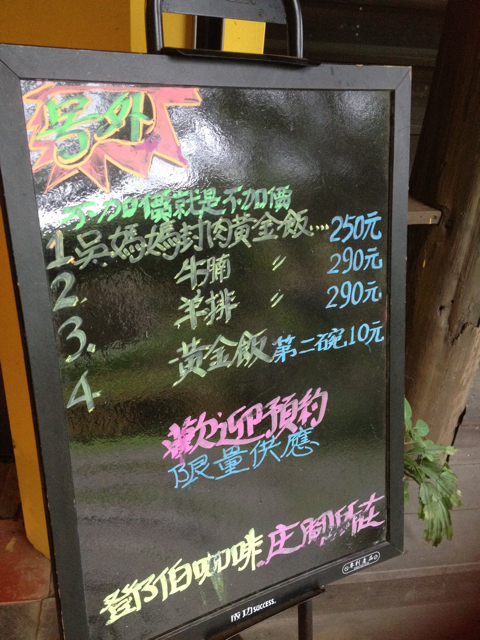 号外
不加價就是不加價
1.吳媽媽封肉黃金飯....250元
2. 牛腩 〃 290元
3. 羊排 〃 290元
4 黃金飯 第二碗10元
歡迎預約
限量供應
鄧伯咖啡.庄腳所在
成功SUCCESS.